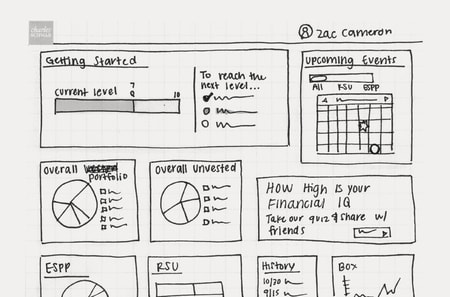 charles
SCHWAB
Zac Cameron
Getting Started
current level
7
10
To reach the
next level...
Upcoming Events
All RSU ESPP
Overall
portfolio
Overall Unvested
How High is your
Financial IQ
Take our quiz & share w/
friends
ESPP
RSU
History
10/20
9/15
Box